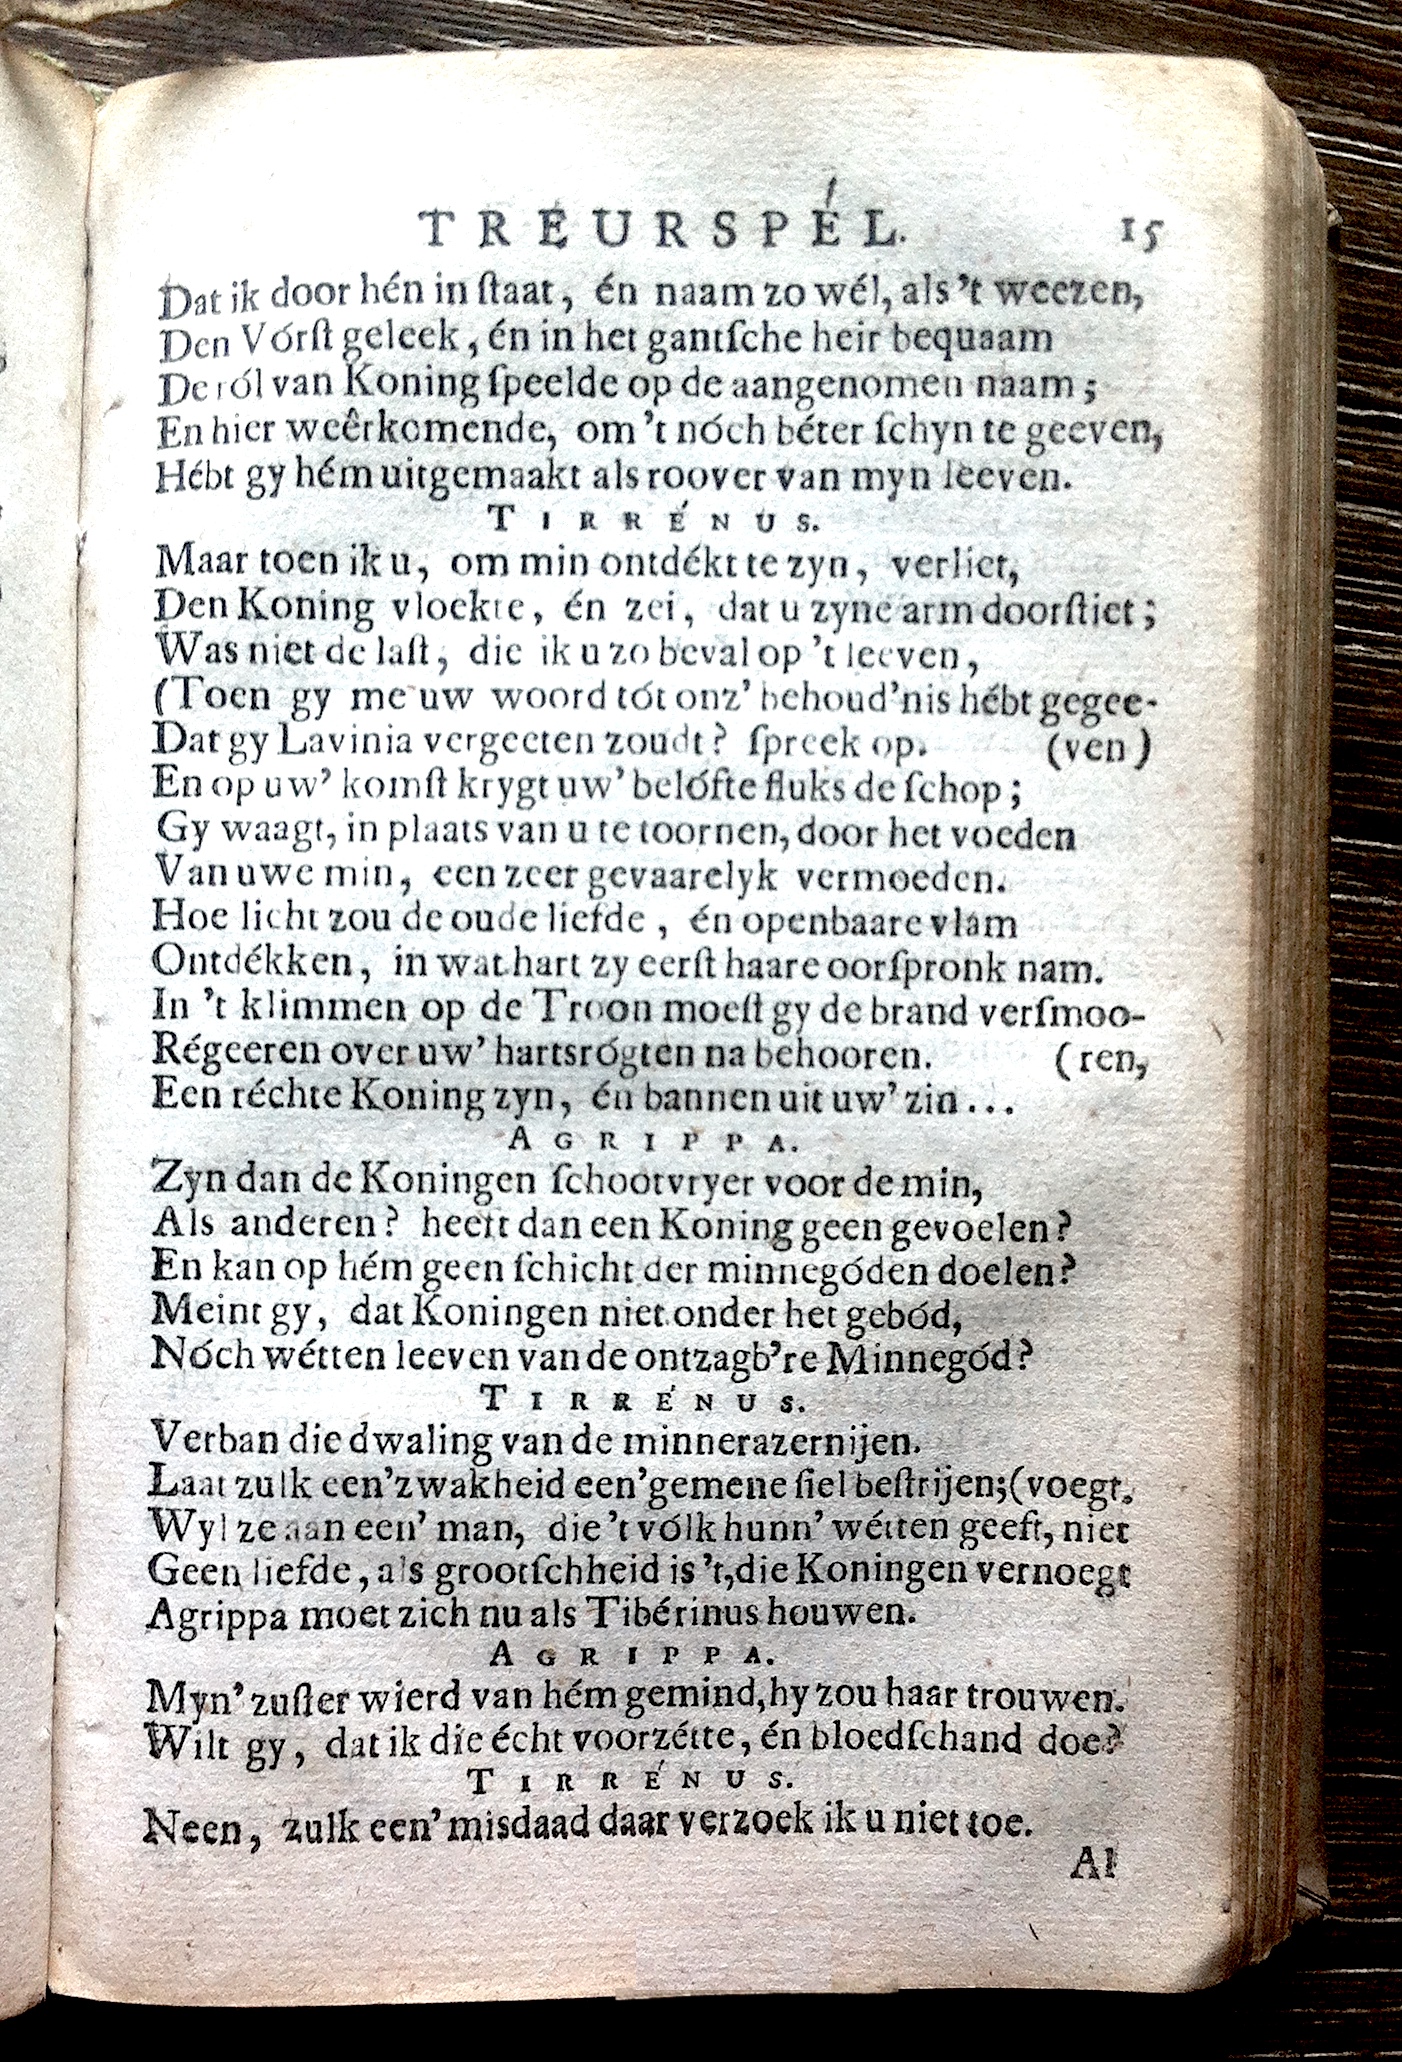 TREURSPÉL. 15
Dat ik door hén in ſtaat, én naam zo wél, als 't weezen,
Den Vórſt geleek, én in het gantſche heir bequaam
De ról van Koning ſpeelde op de aangenomen naam;
En hier weêrkomende, om 't nóch béter ſchyn te geeven,
Hébt gy hém uitgemaakt als roover van myn leeven.
TIRRÉNUS.
Maar toen ik u, om min ontdékt te zyn, verliet,
Den Koning vloekte, én zei, dat u zyne arm doorſtiet;
Was niet de laſt, die ik u zo beval op 't leeven,
(Toen gy me uw woord tót onz' behoud'nis hébt gegee-
Dat gy Lavinia vergeeten zoudt? ſpreek op. (ven)
En op uw' komſt krygt uw' belófte fluks de ſchop;
Gy waagt, in plaats van u te toornen, door het voeden
Van uwe min, een zeer gevaarelyk vermoeden.
Hoe licht zou de oude liefde, én openbaare vlam
Ontdékken, in wat hart zy eerſt haare oorſpronk nam.
In 't klimmen op de Troon moeſt gy de brand verſmoo-
Régeeren over uw' hartsrógten na behooren. (ren,
Een réchte Koning zyn, én bannen uit uw' zin...
AGRIPPA.
Zyn dan de Koningen ſchootvryer voor de min,
Als anderen? heeft dan een Koning geen gevoelen?
En kan op hém geen ſchicht der minnegóden doelen?
Meint gy, dat Koningen niet onder het gebód,
Nóch wétten leeven van de ontzagb're Minnegód?
TIRRÉNUS.
Verban die dwaling van de minnerazernijen.
Laat zulk een' zwakheid een' gemene ſiel beſtrijen; (voegt.
Wyl ze aan een' man, die 't vólk hunn' wétten geeft, niet
Geen liefde, als grootſchheid is 't, die Koningen vernoegt
Agrippa moet zich nu als Tibérinus houwen.
AGRIPPA.
Myn' zuſter wierd van hém gemind, hy zou haar trouwen.
Wilt gy, dat ik die écht voorzétte, én bloedſchand doe?
TIRRÉNUS.
Neen, zulk een' misdaad daar verzoek ik u niet toe.
Al